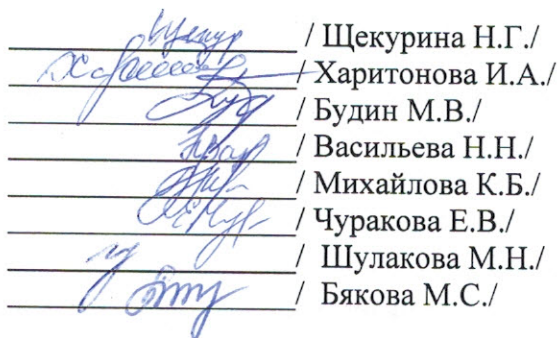 / Щекурина Н.Г./
/Харитонова И.А./
/ Будин М.В./
/ Васильева Н.Н./
/ Михайлова К.Б./
/ Чуракова Е.В./
/ Шулакова М.Н./
/ Бякова М.С./